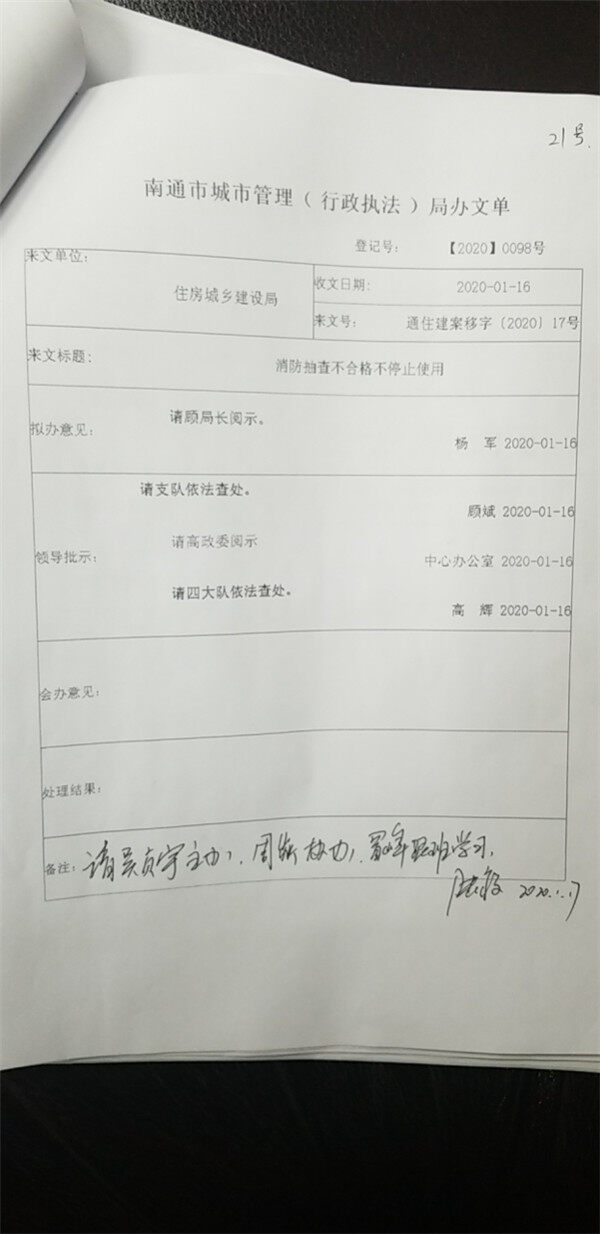 21号.
南通市城市管理（行政执法）局办文单
登记号： 【2020】0098号
来文单位： 住房城乡建设局
收文日期： 2020-01-16
来文号： 通住建案移字〔2020〕17号
来文标题： 消防抽查不合格不停止使用
拟办意见： 请顾局长阅示。
杨 军 2020-01-16
领导批示： 请支队依法查处。
顾斌 2020-01-16
请高政委阅示
中心办公室 2020-01-16
请四大队依法查处。
高 辉 2020-01-16
会办意见：
处理结果：
备注： 请吴贞宇主办，周 协办， 跟班学习.
2020.1.17